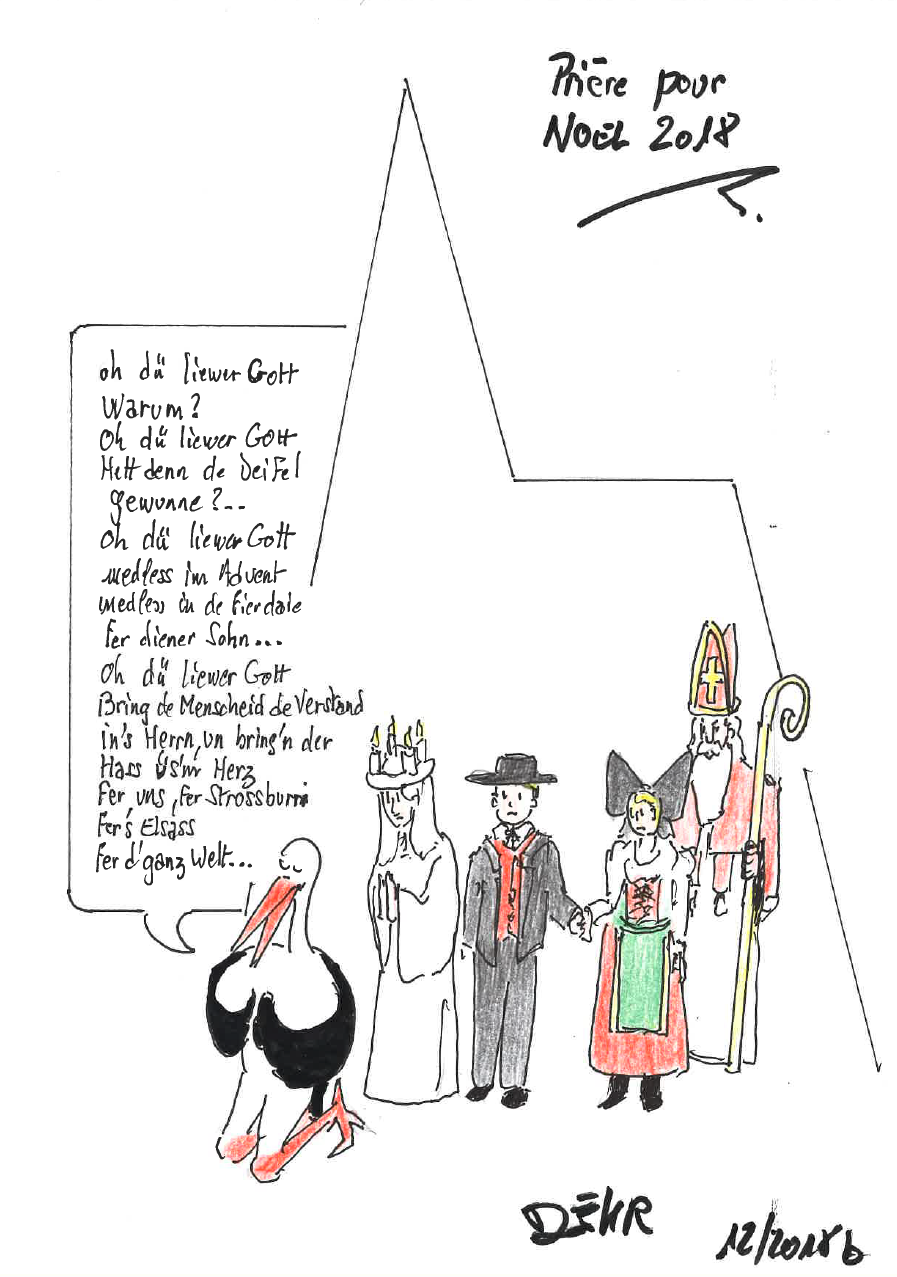 Prière pour
Noël 2018
oh dü liewer Gott
Warum?
Oh dü liewer Gott
Hett denn de Deifel
gewunne?...
Oh dü liewer Gott
medless im Advent
medless in de Fierdale
fer diener Sohn...
Oh dü liewer Gott
Bring de Menscheid de Verstand
in's Herrn, un bring'n der
Hass üs'm Herz
Fer uns, fer Strossburri
Fer's Elsass
Fer d'ganz Welt...
DÉKR
12/2018